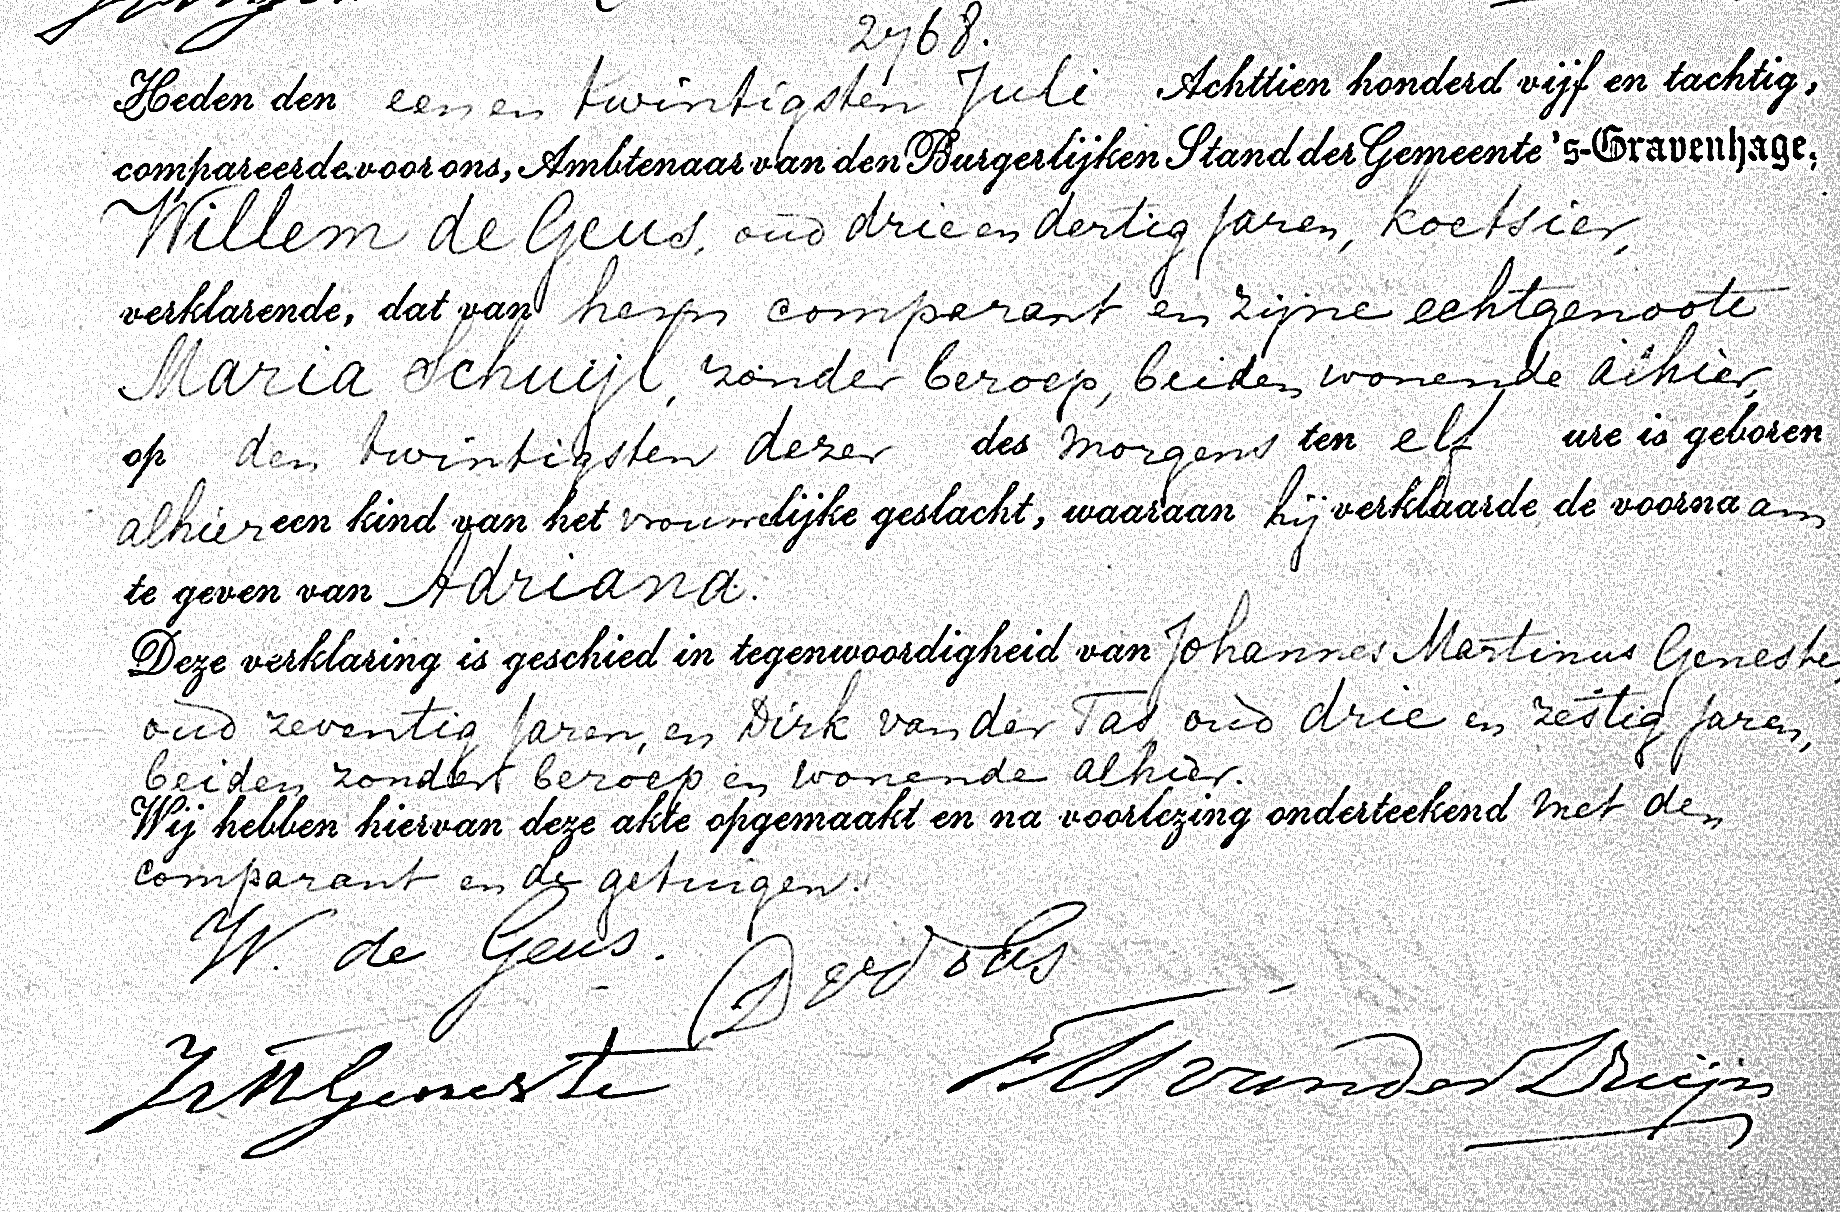 2768.
Heden den een en twintigsten Juli Achttien honderd vijf en tachtig,
compareerde voor ons, Ambtenaar van den Burgerlijken Stand der Gemeente 's-Gravenhage,
Willem de Geus, oud drie en dertig Jaren, koetsier,
verklarende, dat van hem comparant en zijne echtgenoote
Maria Schuijl, zonder beroep, beiden wonende alhier,
op den twintigsten dezer des morgens ten elf ure is geboren
alhier een kind van het vrouwelijke geslacht, waaraan hij verklaarde de voornaam
te geven van Adriana.
Deze verklaring is geschied in tegenwoordigheid van Johannes Martinus Geneste,
oud zeventig Jaren, en Dirk van der Tas, oud drie en zestig Jaren,
beiden zonder beroep en wonende alhier.
Wij hebben hiervan deze akte opgemaakt en na voorlezing onderteekend met den
comparant en de getuigen.
W. de Geus.
D vd Tas
J M Geneste
van der Druijn